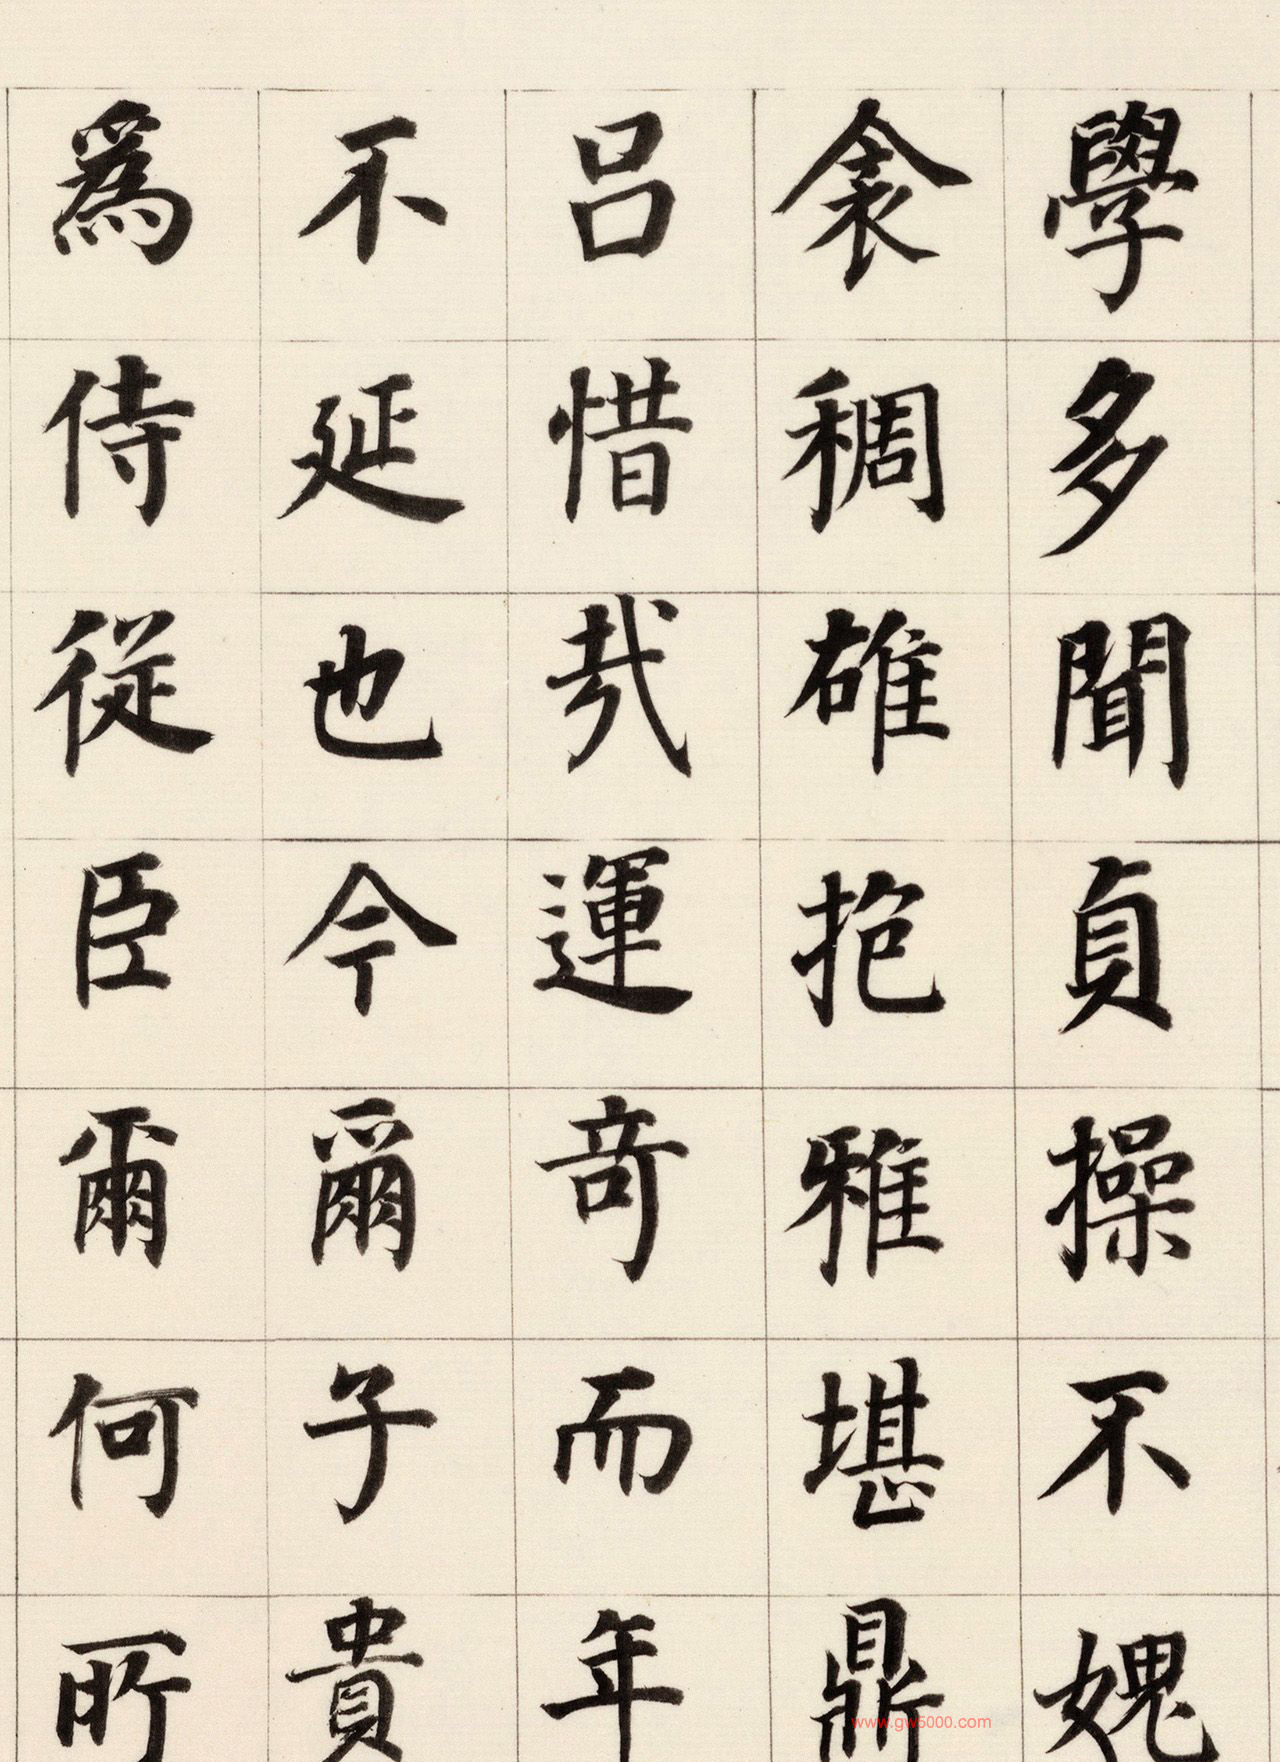 學多聞貞操不媿
衾稠雄抱雅堪鼎
呂惜哉運竒而年
不延也今爾子貴
爲侍從臣爾何所
www.gw5000.com